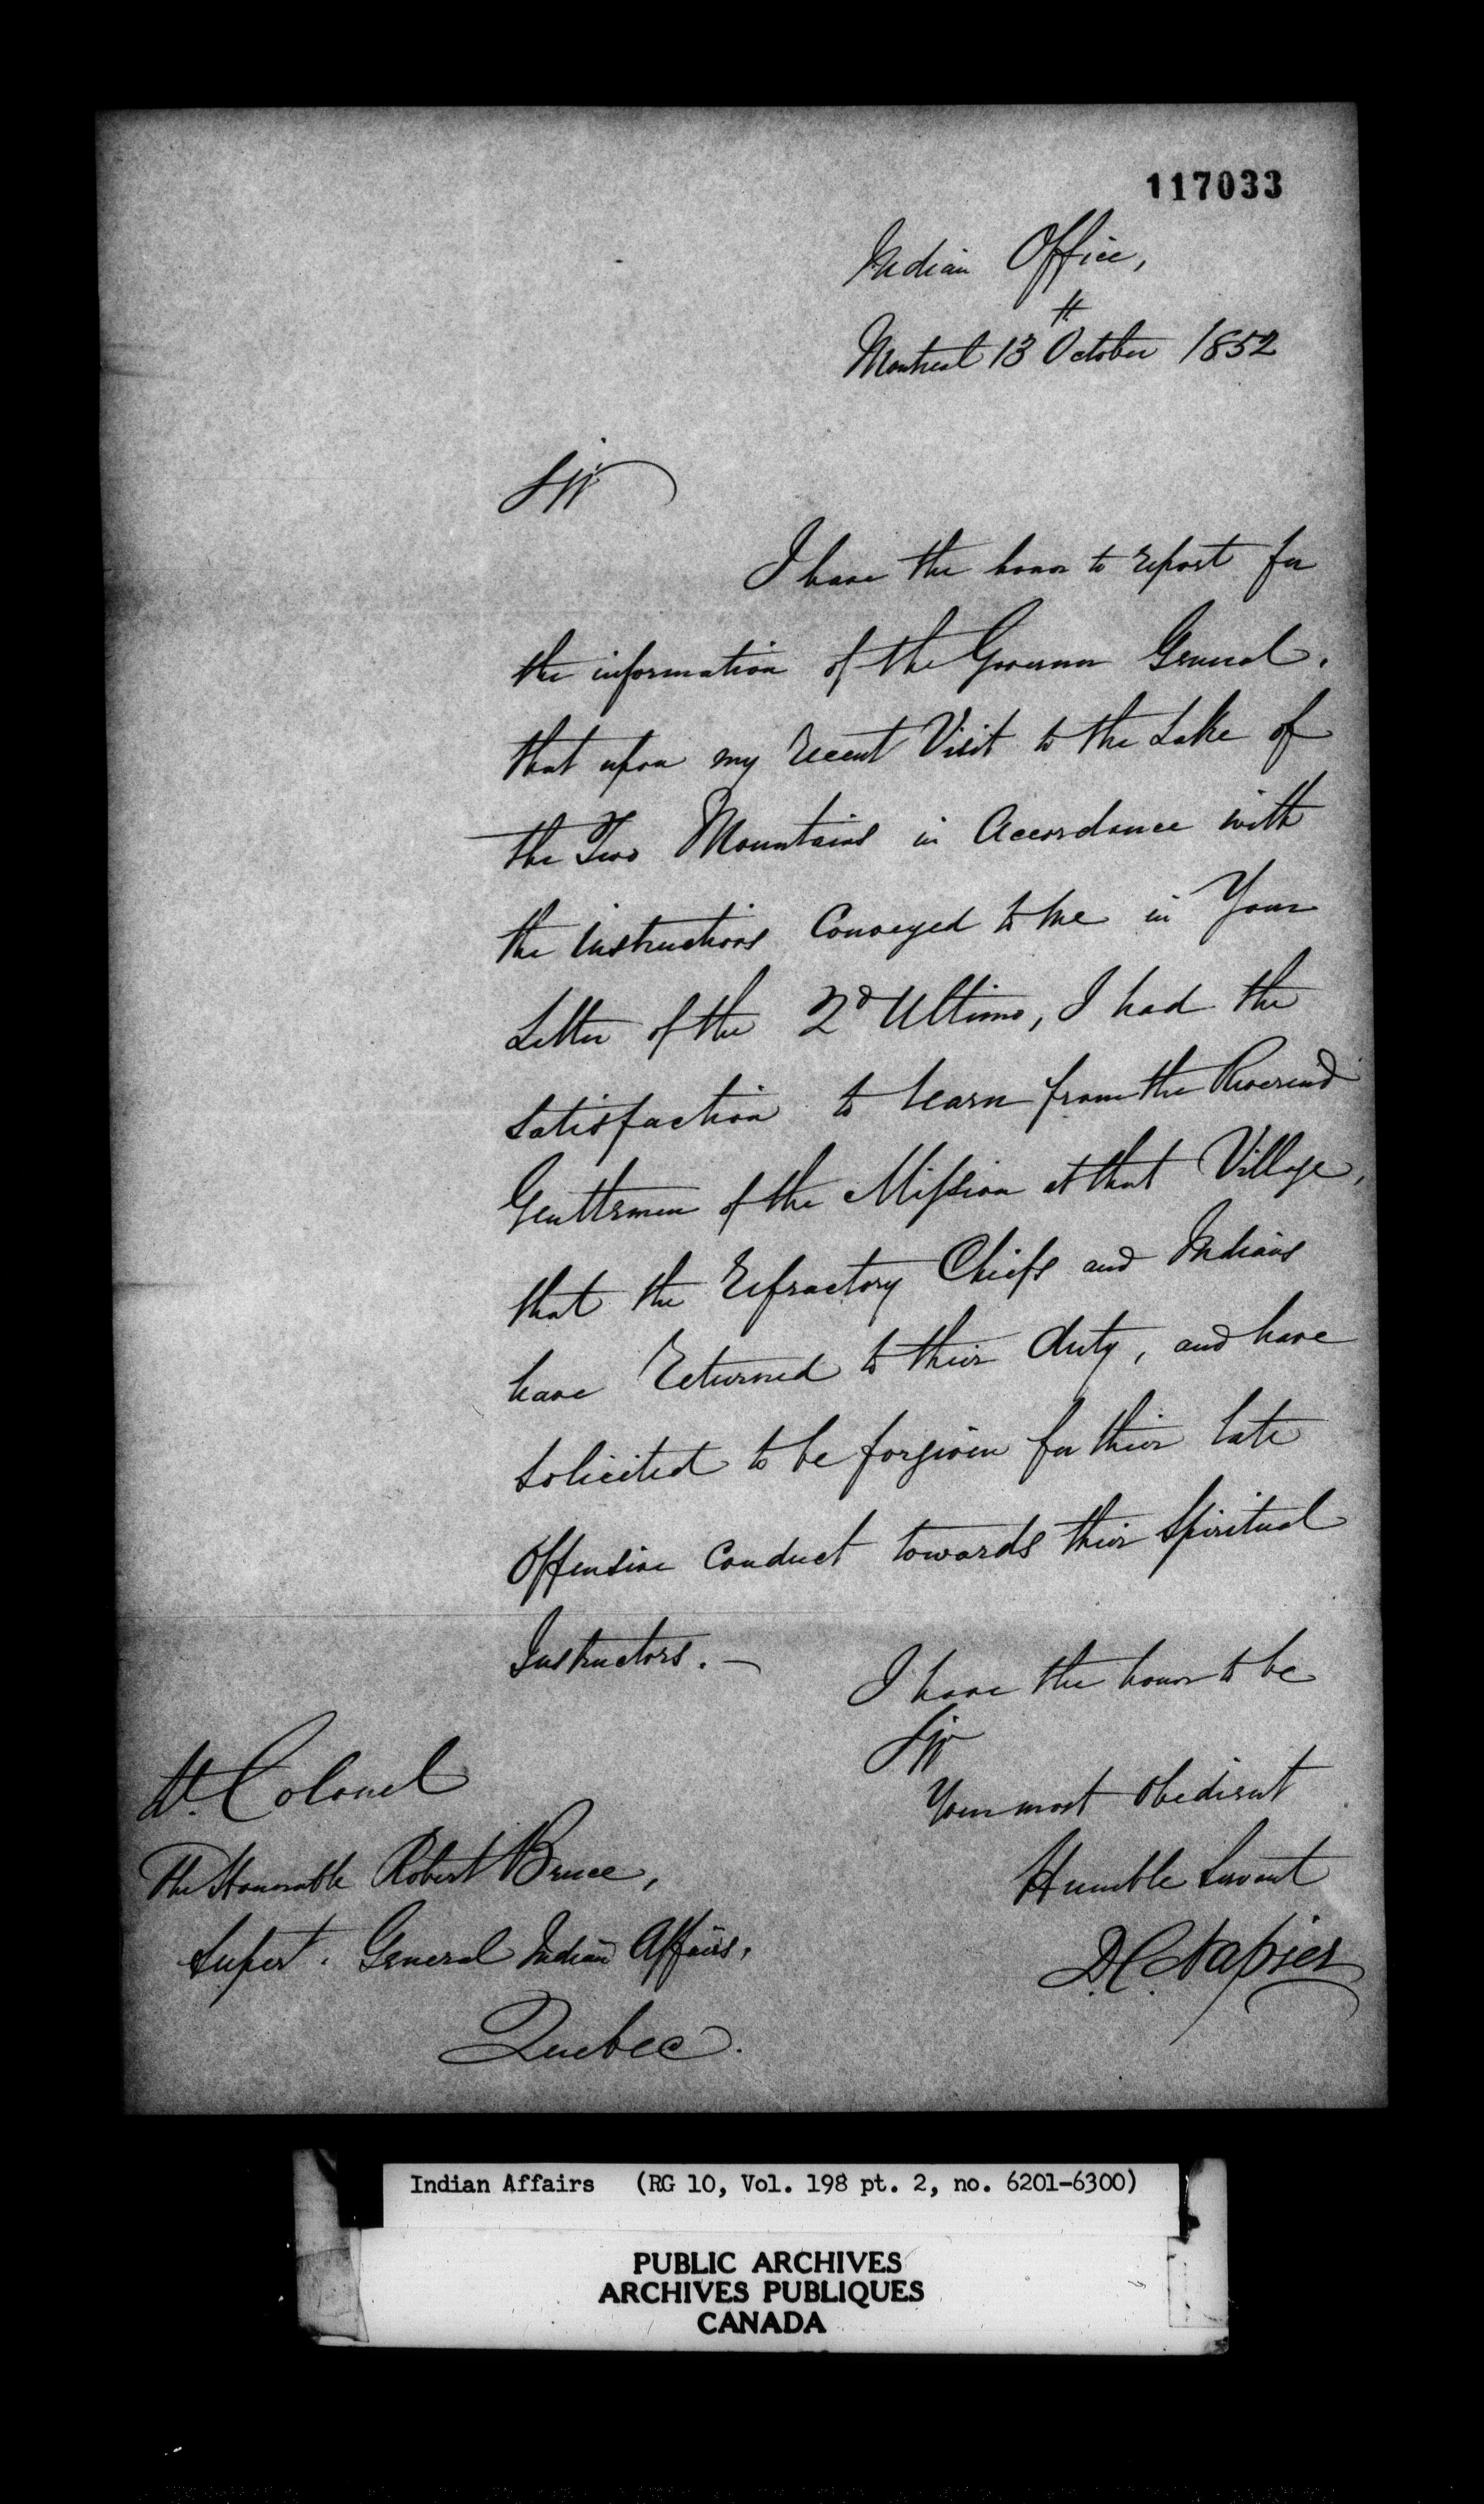 117033
Indian Office,
Montreal 13th October 1852
Sir
I have the honor to report for
the information of the Governor General,
that upon my recent Visit to the Lake of
the Two Mountains in Accordance with
the instructions Conveyed to me in Your
Letter of the 2d Ultimo, I had the
satisfaction to learn from the Reverend
Gentlemen of the Mission at that Village,
that the refractory Chiefs and Indians
have returned to their duty, and have
solicited to be forgiven for their late
Offensive Conduct towards their Spiritual
Instructors. —
I have the honor to be
Sir
Your most Obedient
Humble Servant
D.C. Napier
Lt. Colonel
The Honorable Robert Bruce,
Supert. General Indian Affairs,
Quebec.
Indian Affairs (RG 10, Vol. 198 pt. 2, no. 6201-6300)
PUBLIC ARCHIVES
ARCHIVES PUBLIQUES
CANADA